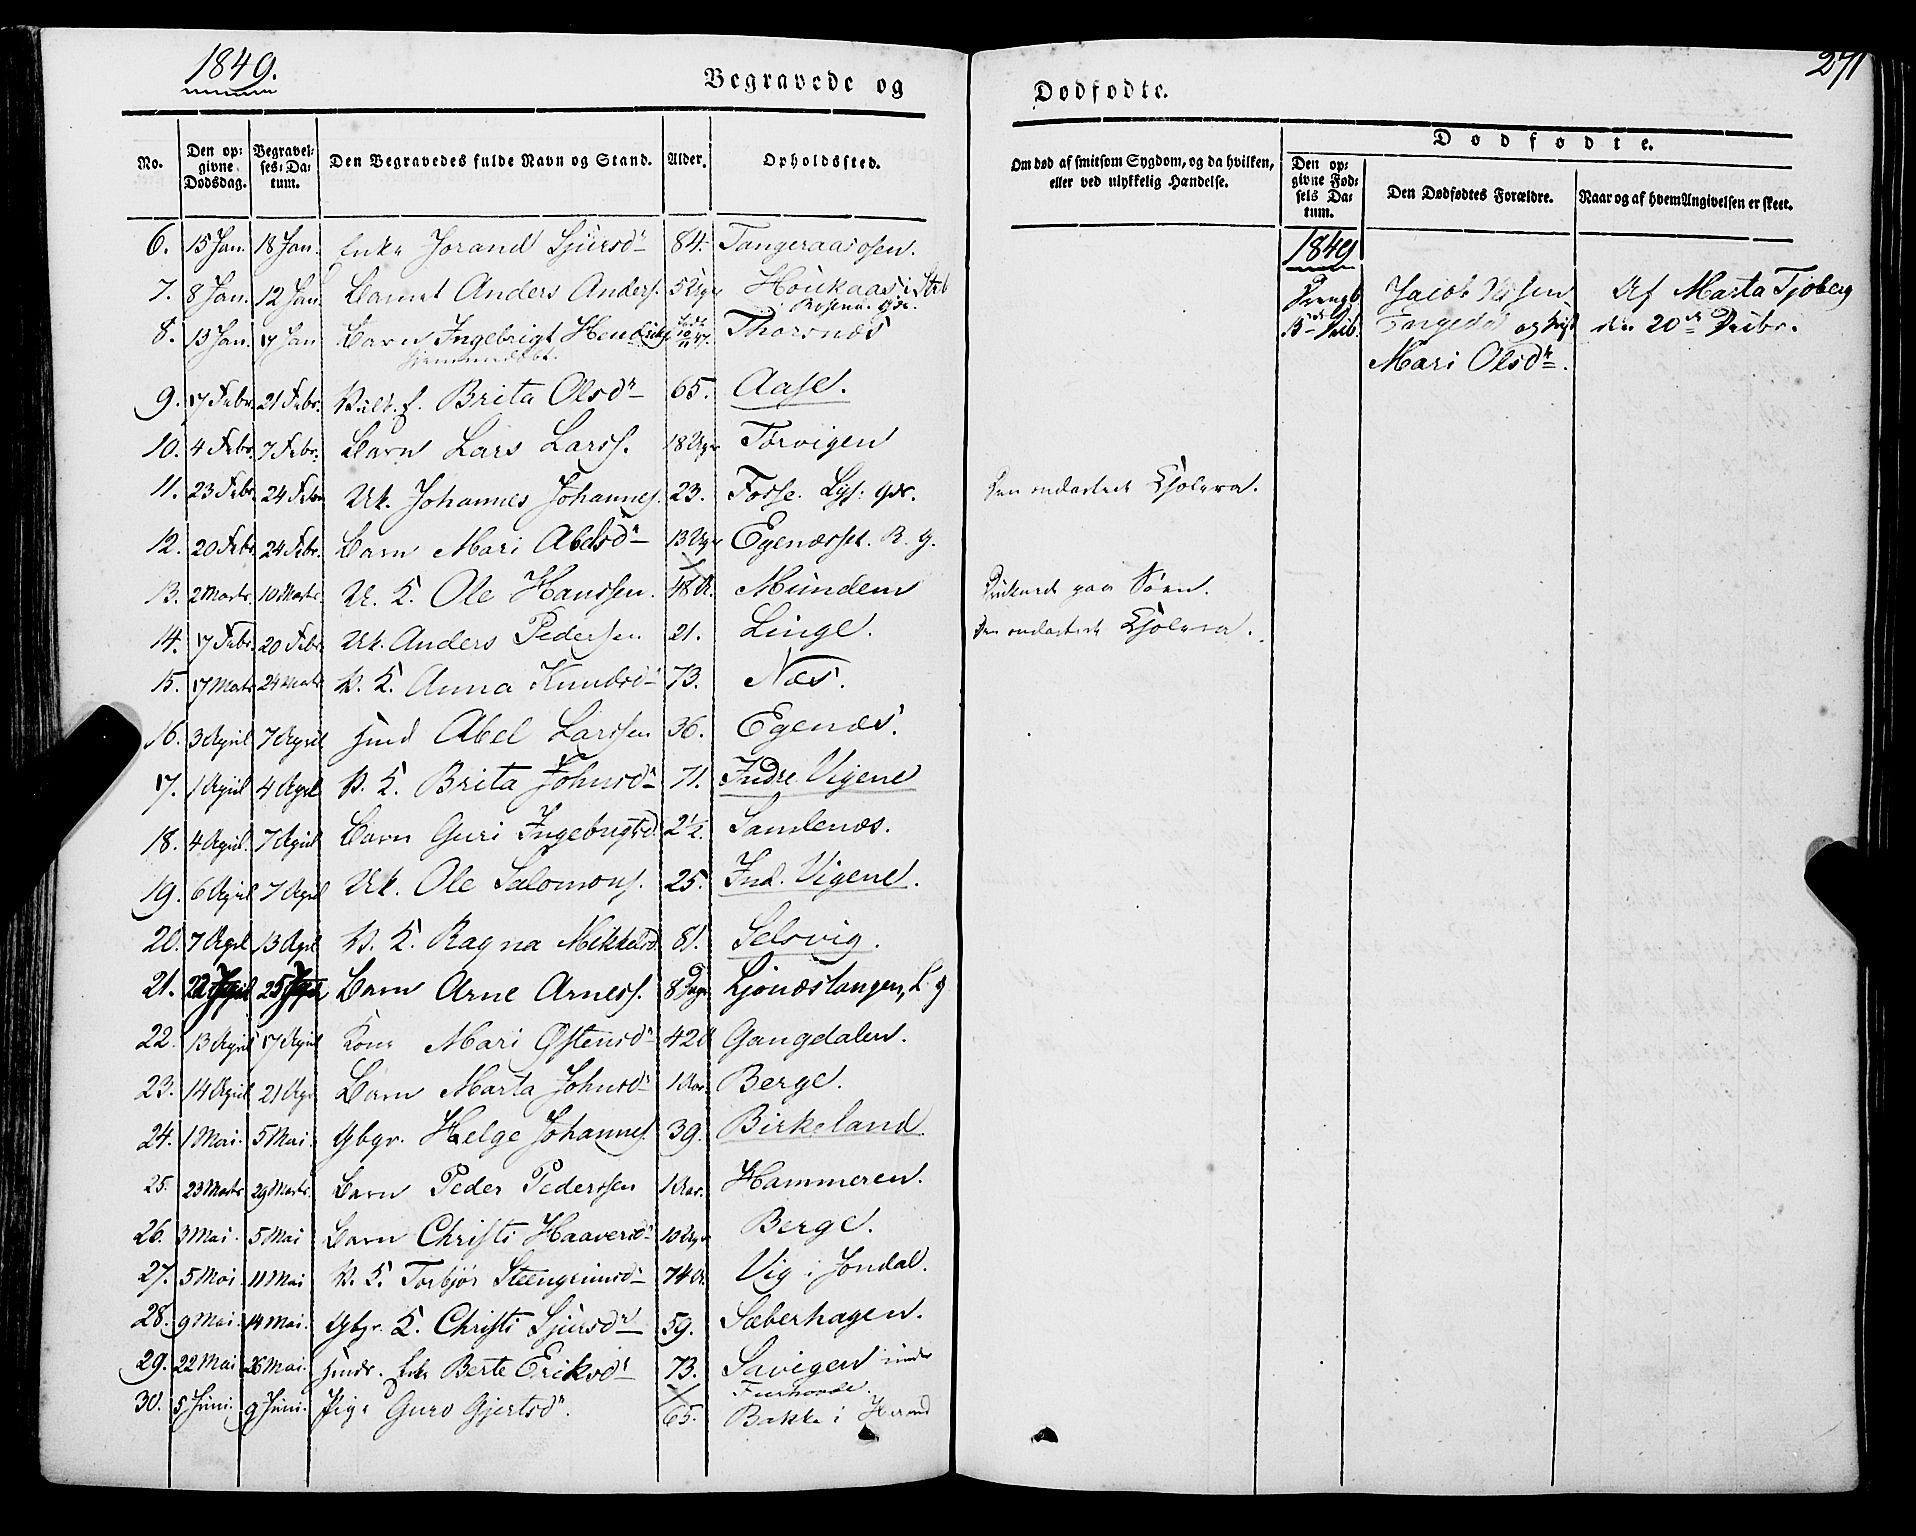 1849.
Begravede og
Dødfødte.
271
No.
Den opgivne Dødsdag.
Begravelses-Datum.
Den Begravedes fulde Navn og Stand.
Alder.
Opholdssted.
Om død af smitsom Sygdom, og da hvilken, eller ved ulykkelig Hændelse.
Dødfødte.
Den opgivne Fødsels Datum.
Den Dødfødtes Forældre.
Naar og af hvem Angivelsen er skeet.
6. 15 Jan. 18 Jan. Enke Jorand Sjursdr 84. Tangeraasosen.
7. 8 Jan. 12 Jan. Barnet Anders Anders. 5 Uger Houkaas i Strb
i Rosend. Gde.
8. 13 Jan. 17 Jan Barn Ingebrigt Thorsnæs
hjemmedøbt.
9. 17 Febr. 21 Febr. Brita Olsdr 65. Aase.
10. 4 Febr. 7 Febr. Barn Lars Larss. 18 Uger Torvigen
11. 23 Febr. 24 Febr Uk. Johannes Johannes. 23. Fosse. Lys: gdr. Den ondartede Cholera.
12. 20 Febr. 24 Febr. Barn Mari Abelsdr 13 Uger Egenæsset. R. G.
13. 2 Marts. 10 Marts. U. K. Ole Hanssen. Mundem Druknede paa Søen.
14. 17 Febr. 20 Febr. Uk. Anders Pedersen 21. Linge. Den ondartede Cholera.
15. 17 Marts 24 Marts K. Anna Knudsdr 73. Næs.
16. 3 April 7 April Huusmd Abel Larssen 36. Egenæs.
17. 1 April 4 April K. Brita Johnsdr 71. Indre Vigene
18. 4 April. 7 April Barn Guri Ingebrigtsd. 2½. Samlenæs.
19. 6 April 7 April Uk. Ole Salomons. 25. Ind. Vigene.
20. 7 April 13 April K. Ragna Mikkelsd. 81. Selsvig.
21. 22 April 25 Barn Arne Arness. 8 Dage Ljonæstangen, L. g
22. 13 April 17 April Kone Mari Østensdr 42 Gangdalen.
23. 14 April 21 Apr Barn Marta Johnsdr 1 Aar. Berge.
24. 1 Mai. 5 Mai. Gbgr. Helge Johannes. 39. Birkeland
25. 23 Marts 29 Marts. Barn Peder Pederssen 1 Aar. Hammeren.
26. 3 Mai. 5 Mai Barn Christi Haaversdr 10 Uger Berge.
27. 5 Mai 11 Mai K. Torbjør Steengrimsdr 74 Vig i Jondal.
28. 9 Mai. 14 Mai. Gbgr. K. Christi Sjursdr 59. Sæberhagen.
29. 22 Mai 26 Mai. Huusm. Enke Berte Eriksdr 73. Savigen under
30. 5 Juni. 9 Juni. Pige Guro Gjertsdr. 65. Bakke i Herand
1849
Jacob
og
Mari Olsdr.
Af Marta Tjoberg
den 20de Decbr.